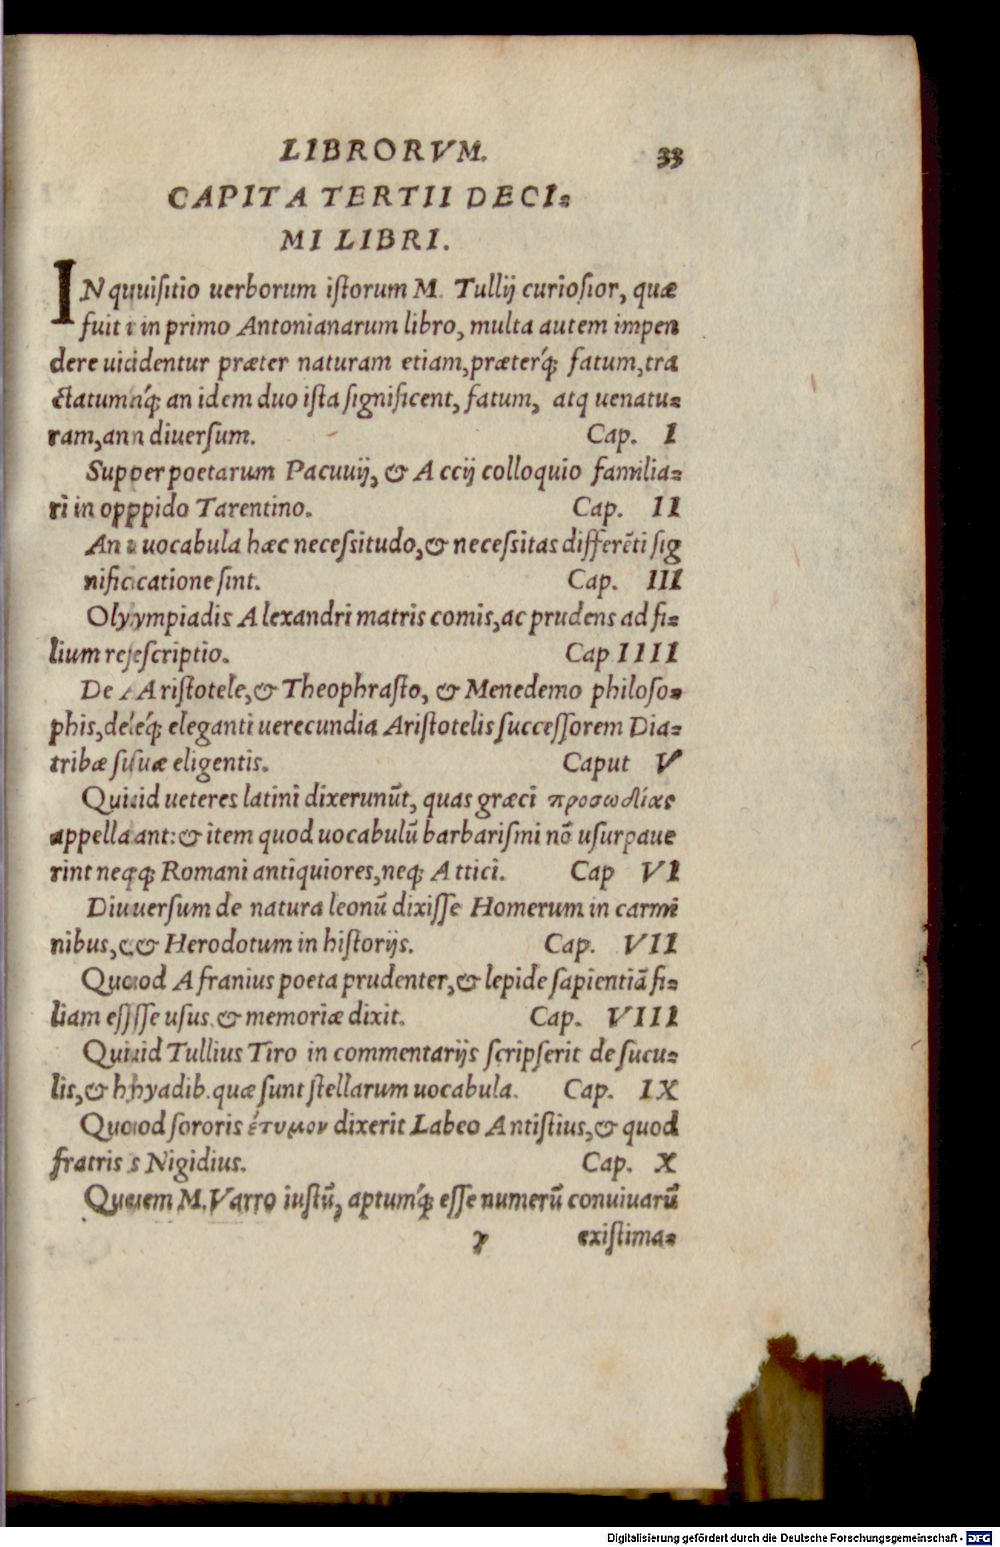 LIBRORVM. 33
CAPITA TERTII DECI-
MI LIBRI.
INquuisitio uerborum istorum M. Tullij curiosior, quæ
fuit i in primo Antonianarum libro, multa autem impen
dere uicidentur præter naturam etiam, præterq́; fatum, tra
ctatumńq́; an idem duo ista significent, fatum, atq uenatu-
ram, ann diuersum. Cap. I
Supper poetarum Pacuuij, & Accij colloquio familia-
ri in opppido Tarentino. Cap. II
An uocabula hæc necessitudo, & necessitas differēti sig
nificcatione sint. Cap. III
Olyympiadis Alexandri matris comis, ac prudens ad fi-
lium rejescriptio. Cap IIII
De Aristotele, & Theophrasto, & Menedemo philoso-
phis, deleq́; eleganti uerecundia Aristotelis successorem Dia-
tribæ sisuæ eligentis. Caput V
Quiid ueteres latini dixerunūt, quas græci προσωδίας
appellaant: & item quod uocabulū barbarismi nō usurpaue
rint neqq; Romani antiquiores, neq; Attici. Cap VI
Diuuersum de natura leonū dixisse Homerum in carmi
nibus, & Herodotum in historijs. Cap. VII
Quood Afranius poeta prudenter, & lepide sapientiā fi-
liam essse usus. & memoriæ dixit. Cap. VIII
Quiid Tullius Tiro in commentarijs scripserit de sucu-
lis, & hhyadib. quæ sunt stellarum uocabula. Cap. IX
Quood sororis ἔτυμον dixerit Labeo Antistius, & quod
fratris s Nigidius. Cap. X
Queuem M. Varro iustū, aptumq́; esse numerū conuiuarū
γ existima-
Digitalisierung gefördert durch die Deutsche Forschungsgemeinschaft - DFG